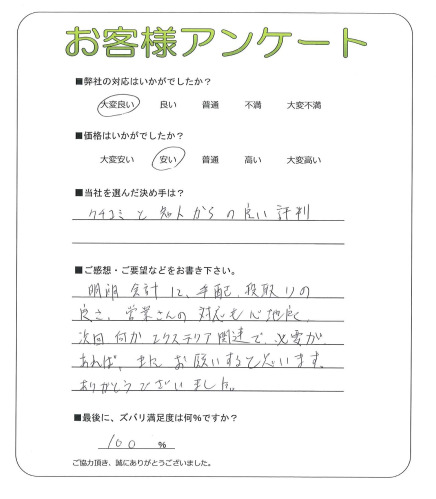 お客様アンケート
■弊社の対応はいかがでしたか？
大変良い 良い 普通 不満 大変不満
■価格はいかがでしたか？
大変安い 安い 普通 高い 大変高い
■当社を選んだ決め手は？
クチコミと知人からの良い評判
■ご感想・ご要望などをお書き下さい。
明朗会計に、手配、段取りの
良さ、営業さんの対応も心地良く
次回何かエクステリア関連で、必要が
あれば、またお願いすると思います。
ありがとうございました。
■最後に、ズバリ満足度は何％ですか？
100 %
ご協力頂き、誠にありがとうございました。